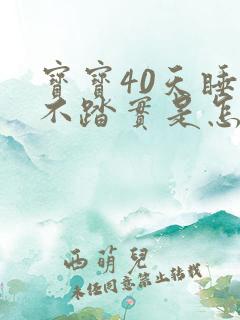 寶寶40天睡
不踏實是怎
西萌兒
未經同意禁止轉載